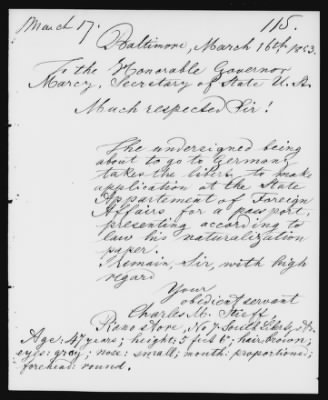 March 17.
115.
Baltimore, March 16th 1853.
To the Honorable Governor
Marcy, Secretary of State U.S.
Much respected Sir!
The undersigned being
about to go to Germany
takes the liberty to make
application at the State
Appartement of Foreign
Affairs for a passport,
presenting according to
law his naturalization
paper.
Remain, Sir, with high
regard
Your
obedient servant
Charles M. Stieff,
Piano store, No 7 South Liberty Str.
Age: 47 years; height: 5 feet 6"; hair: brown;
eyes: gray; nose: small; mouth: proportioned;
forehead: round.